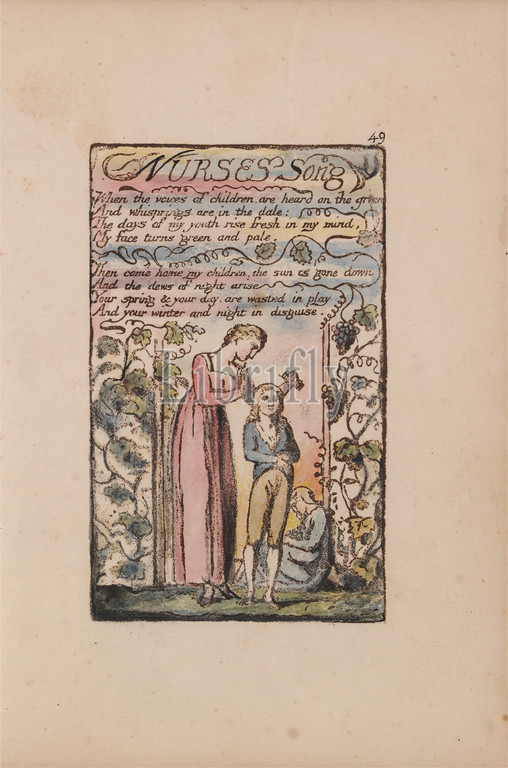 49
NURSES Song
When the voices of children. are heard on the green
And whisprings are in the dale:
The days of my youth rise fresh in my mind,
My face turns green and pale.
Then come home my children, the sun is gone down
And the dews of night arise
Your spring & your day. are wasted in play
And your winter and night in disguise.
Librifly